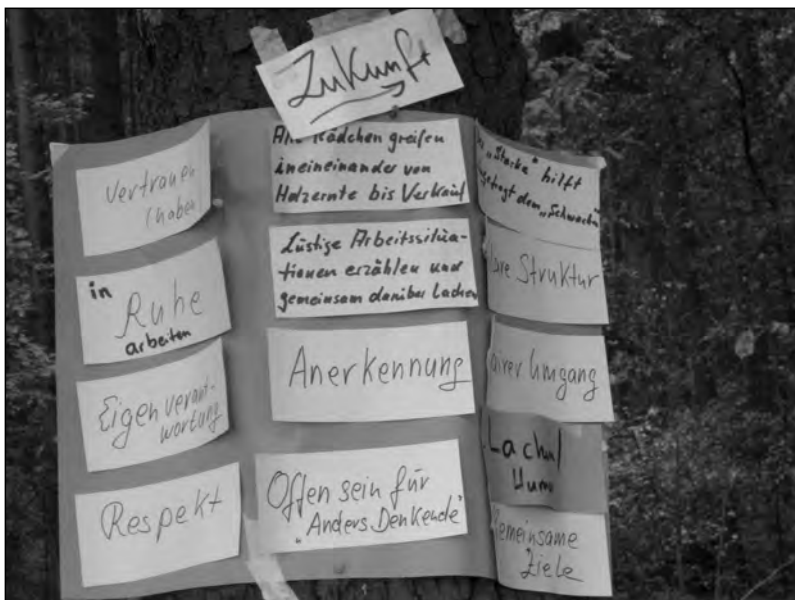 Zukunft
Vertrauen
(haben)
in Ruhe
arbeiten
Eigenverant-
wortung
Respekt
Alle Rädchen greifen
ineineinander von
Holzernte bis Verkauf
Lustige Arbeitssitua-
tionen erzählen und
gemeinsam darüber Lachen
Anerkennung
Offen sein für
"Anders Denkende"
"Starke" hilft
dem "Schwachen"
Struktur
Umgang
Lachen/
Gemeinsame
Ziele